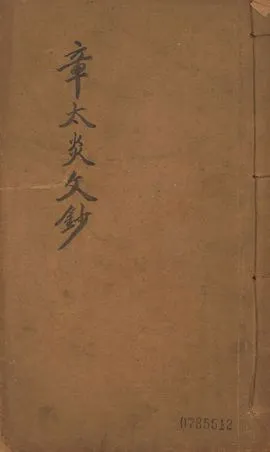 章太炎文鈔
0785512